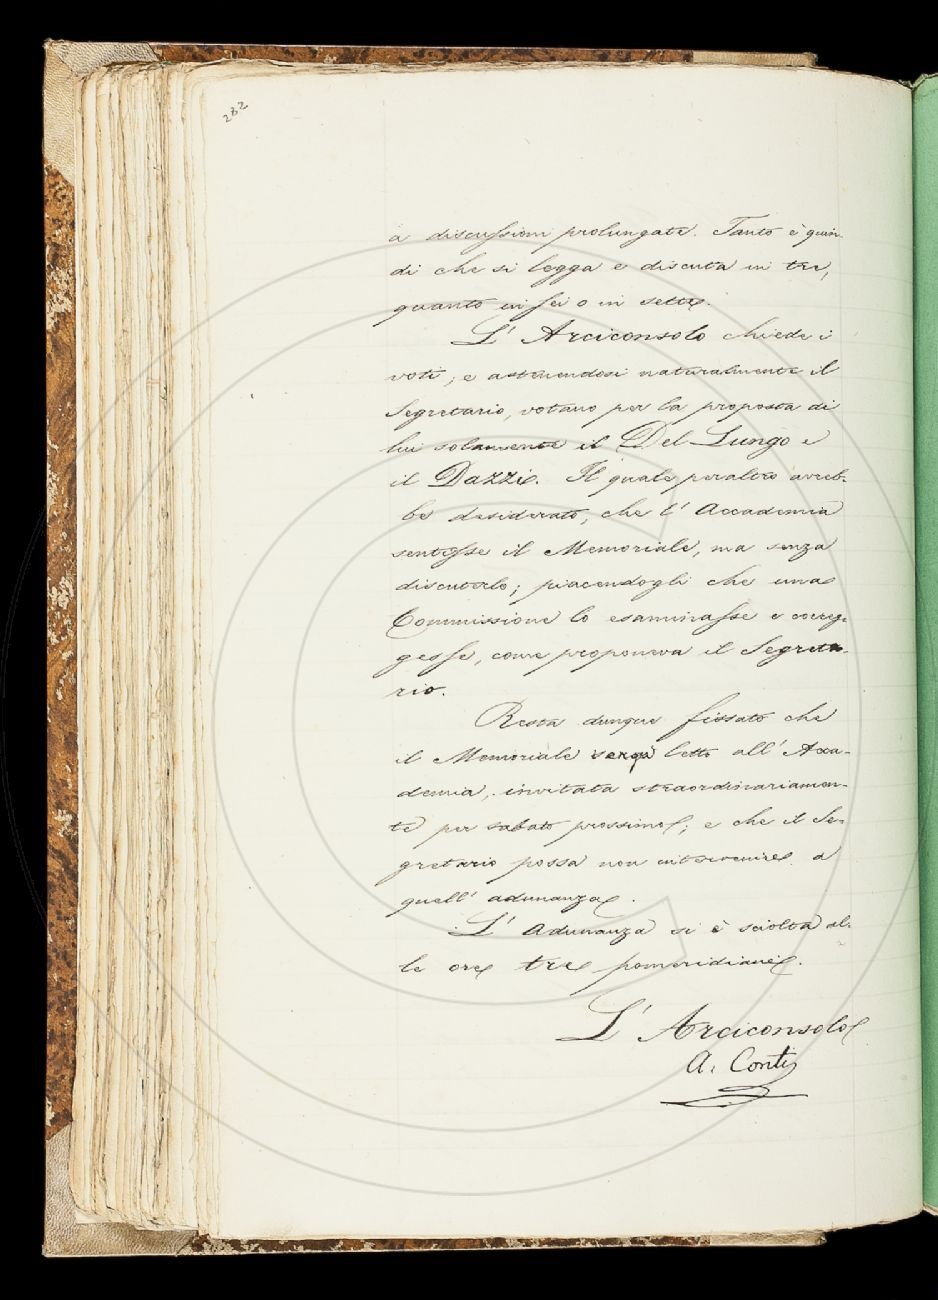 282
a discussioni prolungate. Tanto è quin-
di che si legga e discuta in tre,
quanto in sei o in sette.
L' Arciconsolo chiede i
voti; e astenendosi naturalmente il
Segretario, votano per la proposta di
lui solamente il Del Lungo e
il Dazzi. Il quale peraltro avreb-
be desiderato, che l' Accademia
sentisse il Memoriale, ma senza
discuterlo; piacendogli che una
Commissione lo esaminasse e correg-
gesse, come proponeva il Segreta-
rio.
Resta dunque fissato che
il Memoriale venga letto all' Acca-
demia, invitata straordinariamen-
te per sabato prossimo; e che il Se-
gretario possa non intervenire a
quell' adunanza.
L' Adunanza si è sciolta al-
le ore tre pomeridiane.
L' Arciconsolo
A. Conti